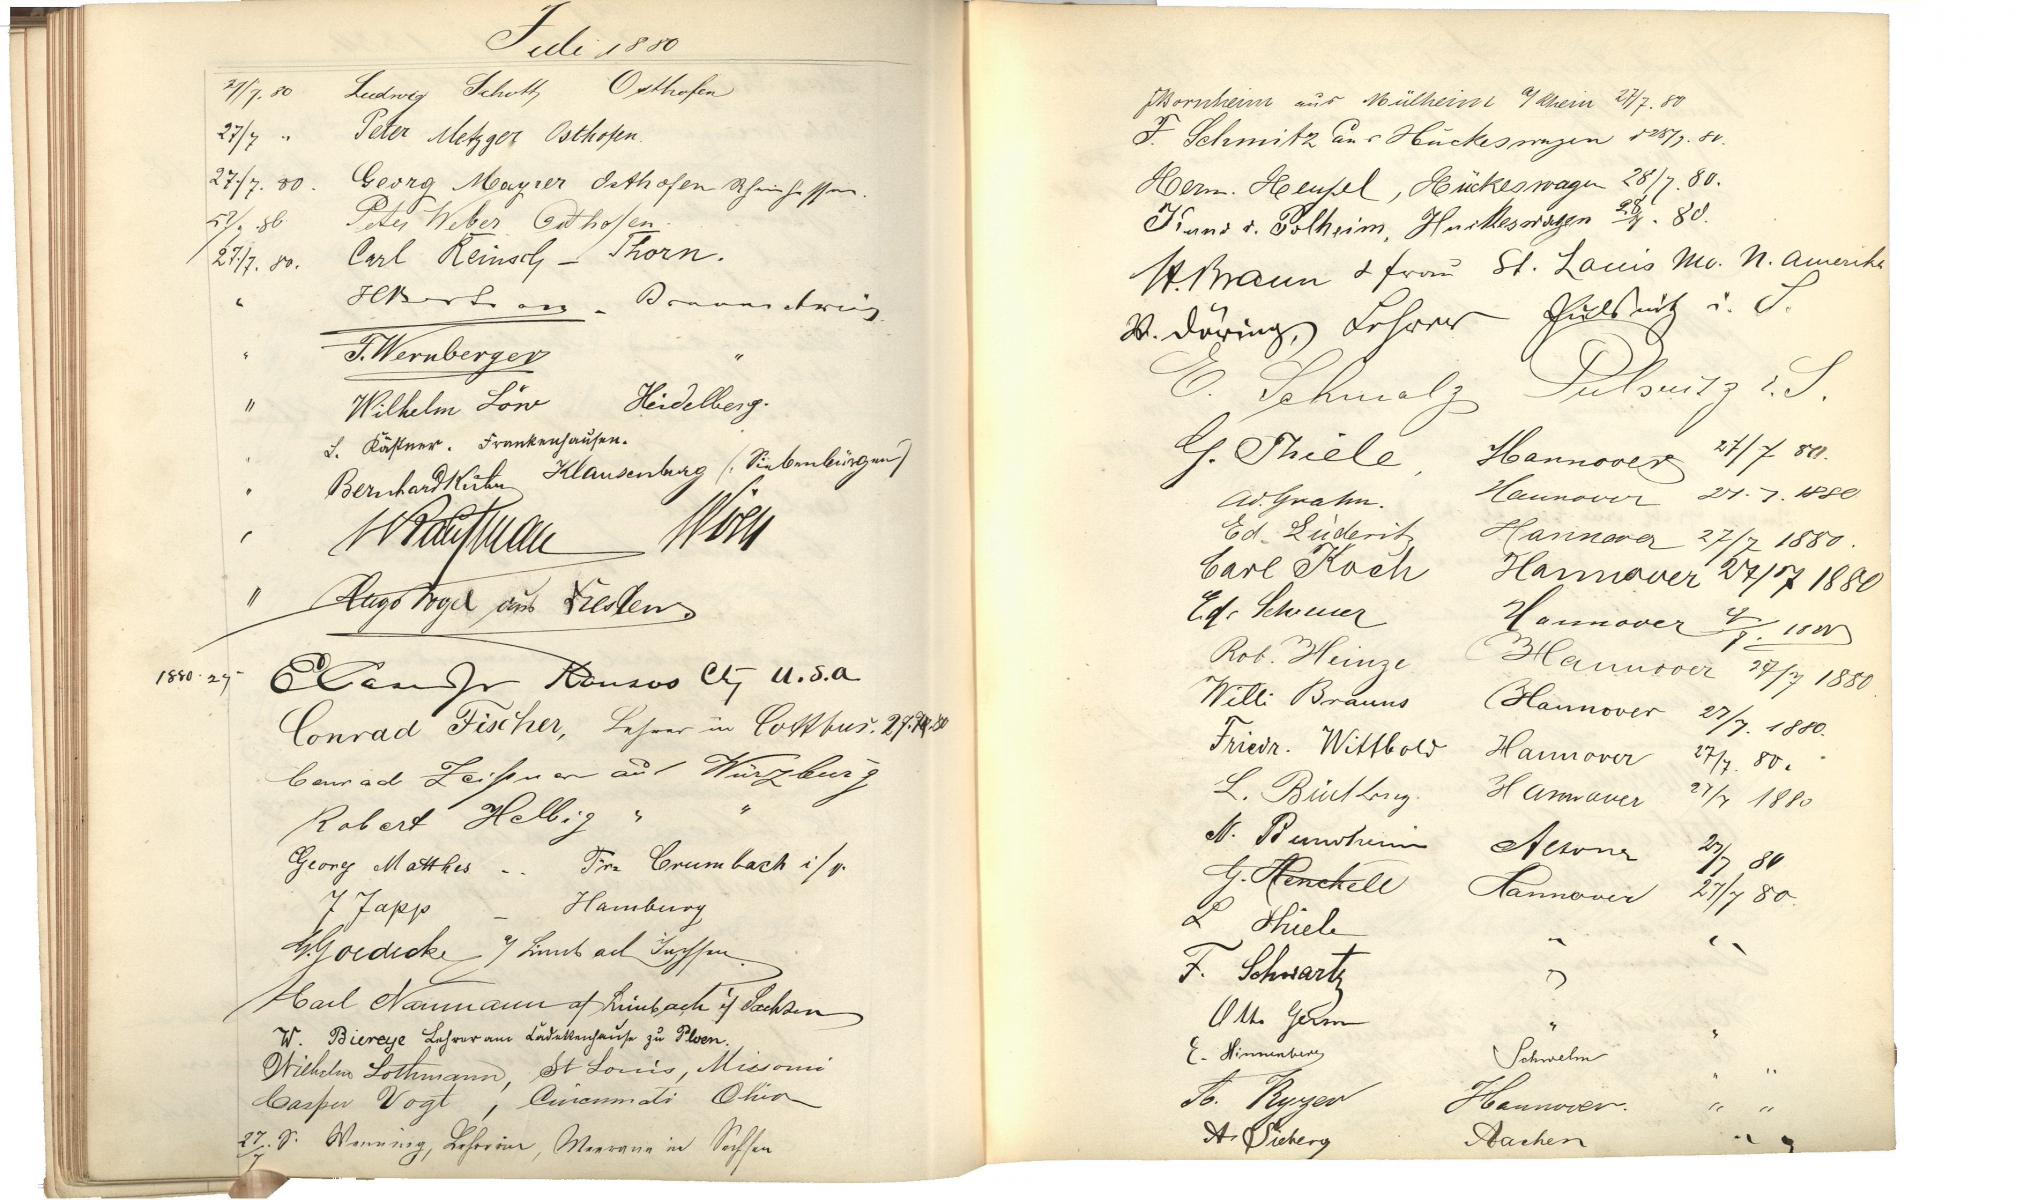 Juli 1880
27/7. 80 Ludwig Schott Osthofen
27/7 " Peter Metzger Osthofen
27./7. 80. Georg Mayrer Osthofen Rheinhessen.
Peter Weber Osthofen
27./7. 80. Carl Reinsch – Thorn.
" Braunschweig
" F. Wernberger "
" Wilhelm Löw Heidelberg.
" L. Kästner. Frankenhausen.
" Bernhard Kuhn Klausenburg (: Siebenbürgen)
" Kaufmann Wien
" Hugo Vogel aus
1880. 27 Kansas City U.S.a
Conrad Fischer, Lehrer in Cottbus. 27. 80
Conrad Zeißner aus Würzburg
Robert Helbig " "
Georg Matthes Crumbach
J Japp – Hamburg
G. Goedecke a/ Limbach Sachsen.
Karl Naumann a/ Limbach i/ Sachsen
W. Biereye Lehrer am Cadettenhause zu Ploen.
Wilhelm Lothmann, St Louis, Missouri
Casper Vogt, Cincinnati Ohio
27/7 Lehrerin, Meerane in Sachsen
Bornheim aus Mülheim a/ Rhein 27/7. 80
F. Schmitz aus Hückeswagen d 28/7. 80.
Herm. Heusel, Hückeswagen 28/7. 80.
Polheim, Hückeswagen 28/7. 80.
H. Braun & frau St. Louis Mo. N. Amerika
W. Döring, Lehrer Pulsnitz i. S.
E. Schmalz Pulsnitz i. S.
G. Thiele, Hannover 27/7 80.
Ad. Grahn. Hannover 27. 7. 1880
Ed. Lüderitz Hannover 27/7 1880.
Carl Koch Hannover 27/7 1880
Ed. Hannover 1880
Rob. Heinze Hannover 27/7 1880
Willi Brauns Hannover 27/7. 1880.
Friedr. Wittbold Hannover 27/7. 80.
L. Hannover 27/7 1880
N. Altona 27/7 80
G. Henckell Hannover 27/7 80.
L Thiele " "
F. Schwartz "
Otto Germ " "
E. Hinnenberg Schwelm " "
Hannover. " "
A. Sieberg Aachen " "